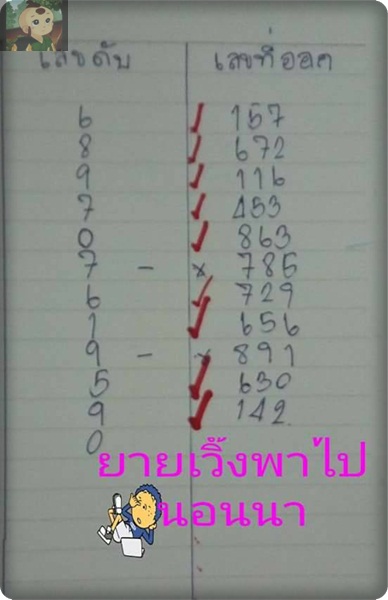 เลขดับ เลขที่ออก
6 ✓ 157
8 ✓ 672
9 ✓ 116
7 ✓ 453
0 ✓ 863
7 – × 785
6 ✓ 729
1 ✓ 656
9 – × 891
5 ✓ 630
9 ✓ 142
0
ยายเวิ้งพาไป
นอนนา